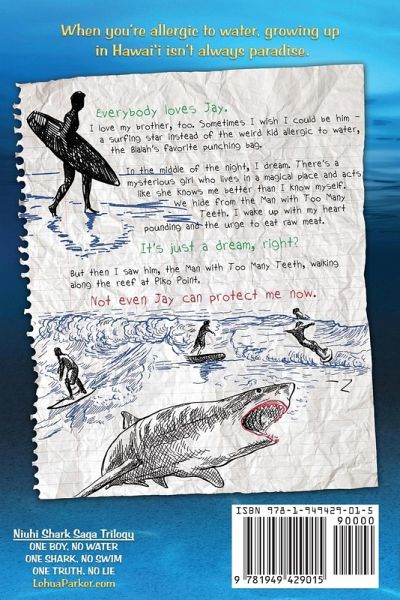 When you're allergic to water, growing up
in Hawai'i isn't always paradise.
Everybody loves Jay.
I love my brother, too. Sometimes I wish I could be him -
a surfing star instead of the weird kid allergic to water,
the Blalah's favorite punching bag.
In the middle of the night, I dream. There's a
mysterious girl who lives in a magical place and acts
like she knows me better than I know myself.
We hide from the Man with Too Many
Teeth. I wake up with my heart
pounding and the urge to eat raw meat.
It's just a dream, right?
But then I saw him, the Man with Too Many Teeth, walking
along the reef at Piko Point.
Not even Jay can protect me now.
Niuhi Shark Saga Trilogy
ONE BOY, NO WATER
ONE SHARK, NO SWIM
ONE TRUTH, NO LIE
LehuaParker.com
ISBN 978-1-949429-01-5
90000
9 781949 429015